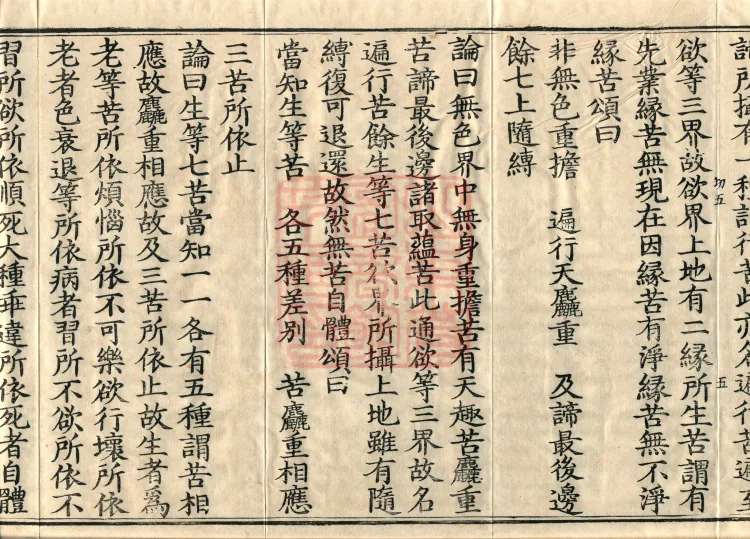 所攝有一種謂行苦此亦名遍行苦遍至
五
五
欲等三界故欲界上地有二緣所生苦謂有
先業緣苦無現在因緣苦有淨緣苦無不淨
緣苦頌曰
非無色重擔　遍行天麤重　及諦最後邊
餘七上隨縛
論曰無色界中無身重擔苦有天趣苦麤重
苦諦最後邊諸取蘊苦此通欲等三界故名
遍行苦餘生等七苦欲界所攝上地雖有隨
縛復可退還故然無苦自體頌曰
當知生等苦　各五種差別　苦麤重相應
三苦所依止
論曰生等七苦當知一一各有五種謂苦相
應故麤重相應故及三苦所依止故生者為
老等苦所依煩惱所依不可樂欲行壞所依
老者色衰退等所依病者習所不欲所依不
習所欲所依順死大種乖違所依死者自體